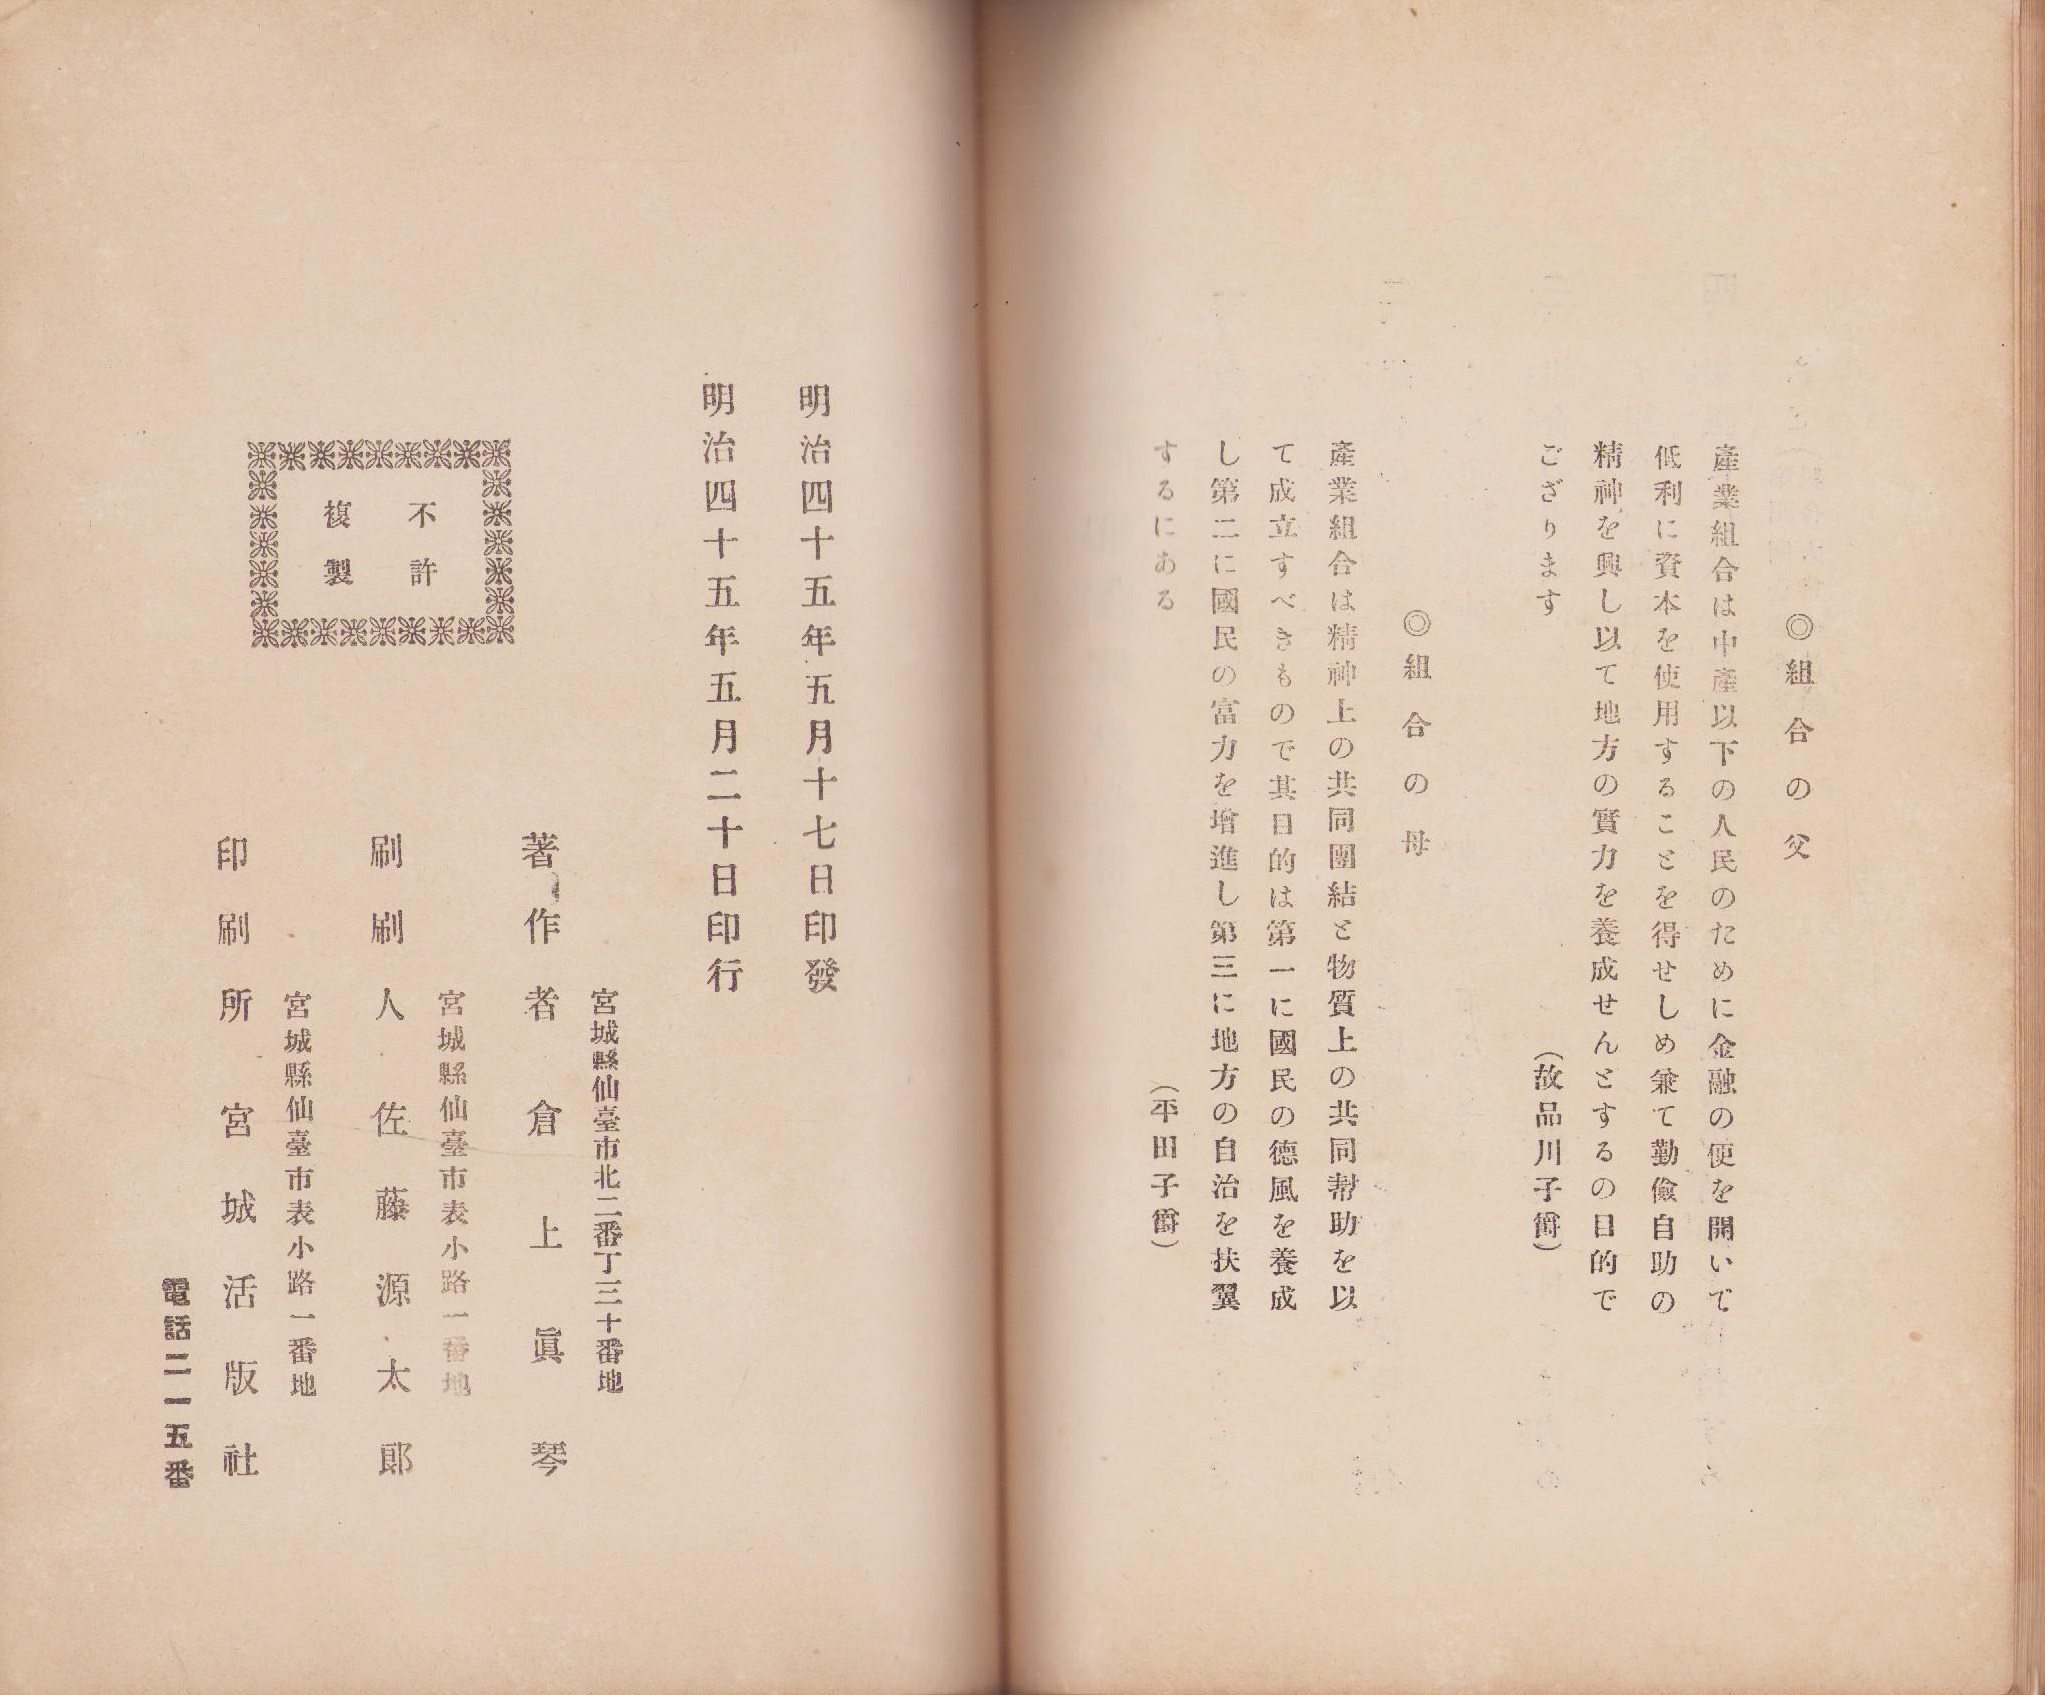 ◎組合の父
產業組合は中產以下の人民のために金融の便を開いて
低利に資本を使用することを得せしめ兼て勤儉自助の
精神を興し以て地方の實力を養成せんとするの目的で
ござります
(故品川子爵)
◎組合の母
產業組合は精神上の共同團結と物質上の共同幇助を以
て成立すべきもので其目的は第一に國民の德風を養成
し第二に國民の富力を增進し第三に地方の自治を扶翼
するにある
(平田子爵)
明治四十五年五月十七日印發
明治四十五年五月二十日印行
宮城縣仙臺市北二番丁三十番地
著作者 倉上眞琴
宮城縣仙臺市表小路一番地
刷刷人 佐藤源太郎
宮城縣仙臺市表小路一番地
印刷所 宮城活版社
電話二一五番
不許
複製